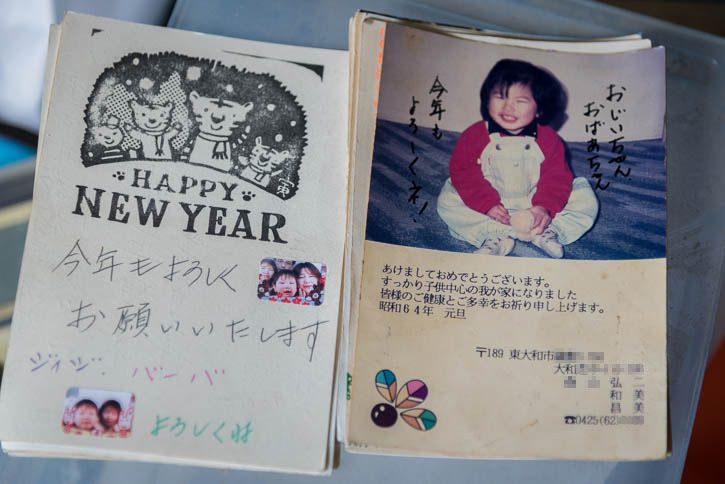 寅
HAPPY
NEW YEAR
今年もよろしく
お願いいたします
ジィジ. バーバ
よろしくね
おじいちゃん
おばあちゃん
今年も
よろしくネ!
あけましておめでとうございます。
すっかり子供中心の我が家になりました
皆様のご健康とご多幸をお祈り申し上げます。
昭和64年 元旦
〒189 東大和市
大和
弘二
和美
昌美
☎0425(62)